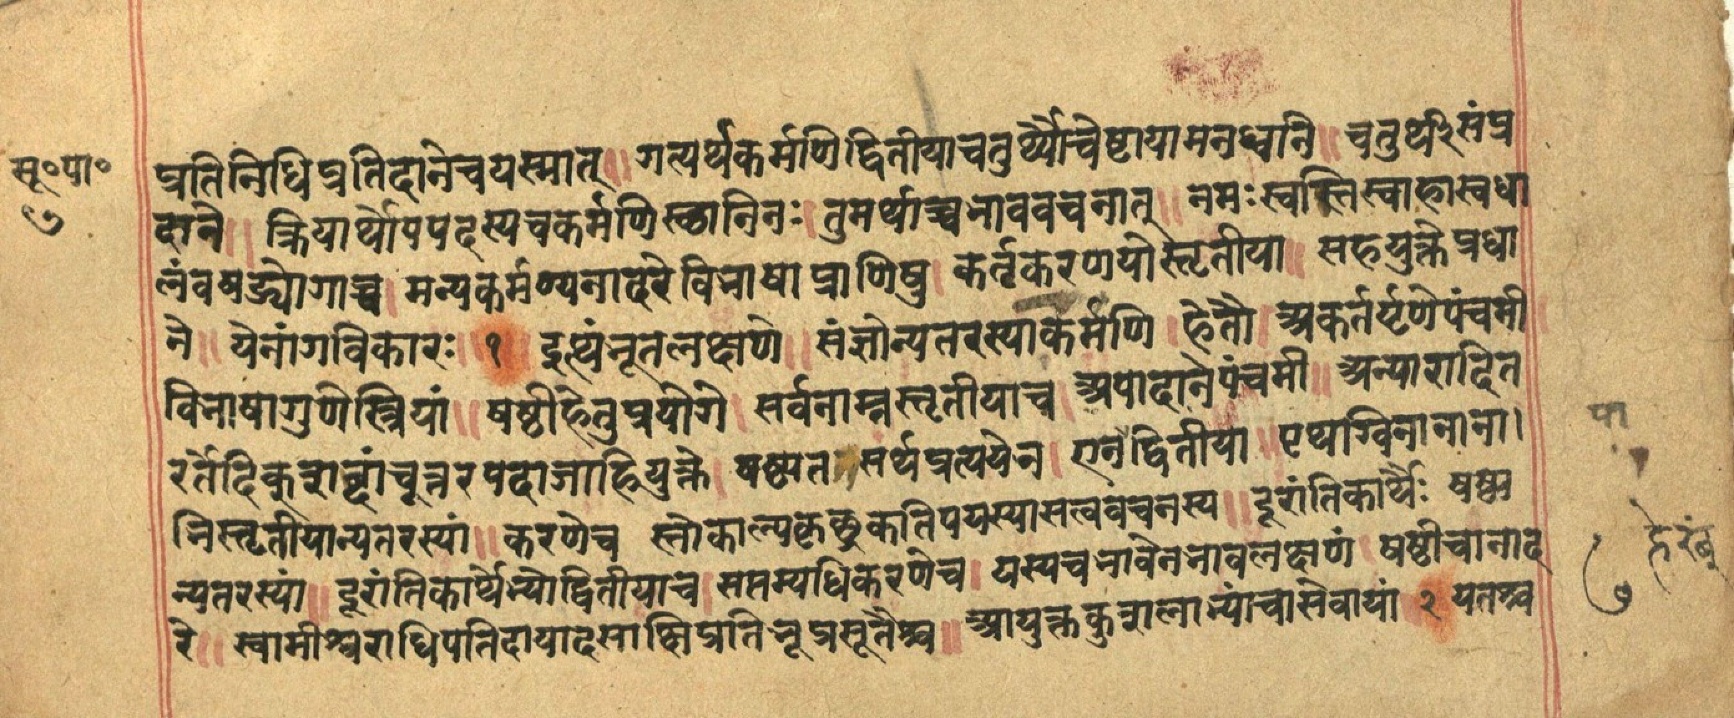 सू॰पा॰
७
प्रतिनिधिप्रतिदानेचयस्मात्॥ गत्यर्थकर्मणिद्वितीयाचतुर्थ्यौचेष्टायामनध्वनि॥ चतुर्थीसंप्र
दाने॥ क्रियार्थोपपदस्यचकर्मणिस्थानिनः। तुमर्थाच्चभाववचनात्॥ नमःस्वस्तिस्वाहास्वधा
लंवषड्योगाच्च। मन्यकर्मण्यनादरेविभाषाप्राणिषु। कर्तृकरणयोस्तृतीया॥ सहयुक्तेप्रधा
ने॥ येनांगविकारः। १ इत्थंभूतलक्षणे॥ संज्ञोन्यतरस्यांकर्मणि। हेतौ। अकर्तर्यृणेपंचमी।
विभाषागुणेस्त्रियां॥ षष्ठीहेतुप्रयोगे। सर्वनाम्नस्तृतीयाच। अपादानेपंचमी॥ अन्यारादित
रर्तेदिक्शब्दांचूत्तरपदाजाहियुक्ते। षष्ठ्यतसर्थप्रत्ययेन। एनपाद्वितीया॥ पृथग्विनानाना।
भिस्तृतीयान्यतरस्यां॥ करणेच स्तोकाल्पकृछ्रकतिपयस्यासत्ववचनस्य॥ दूरांतिकार्थैः षष्ठ्य
न्यतरस्यां॥ दूरांतिकार्थेभ्योद्वितीयाच। सप्तम्यधिकरणेच। यस्यचभावेनभावलक्षणं। षष्ठीचानाद
रे॥ स्वामीश्वराधिपतिदायादसाक्षिप्रतिभूप्रसूतैश्च॥ आयुक्तकुशलाभ्यांचासेवायां २ यतश्च
पा
हेरंब
७